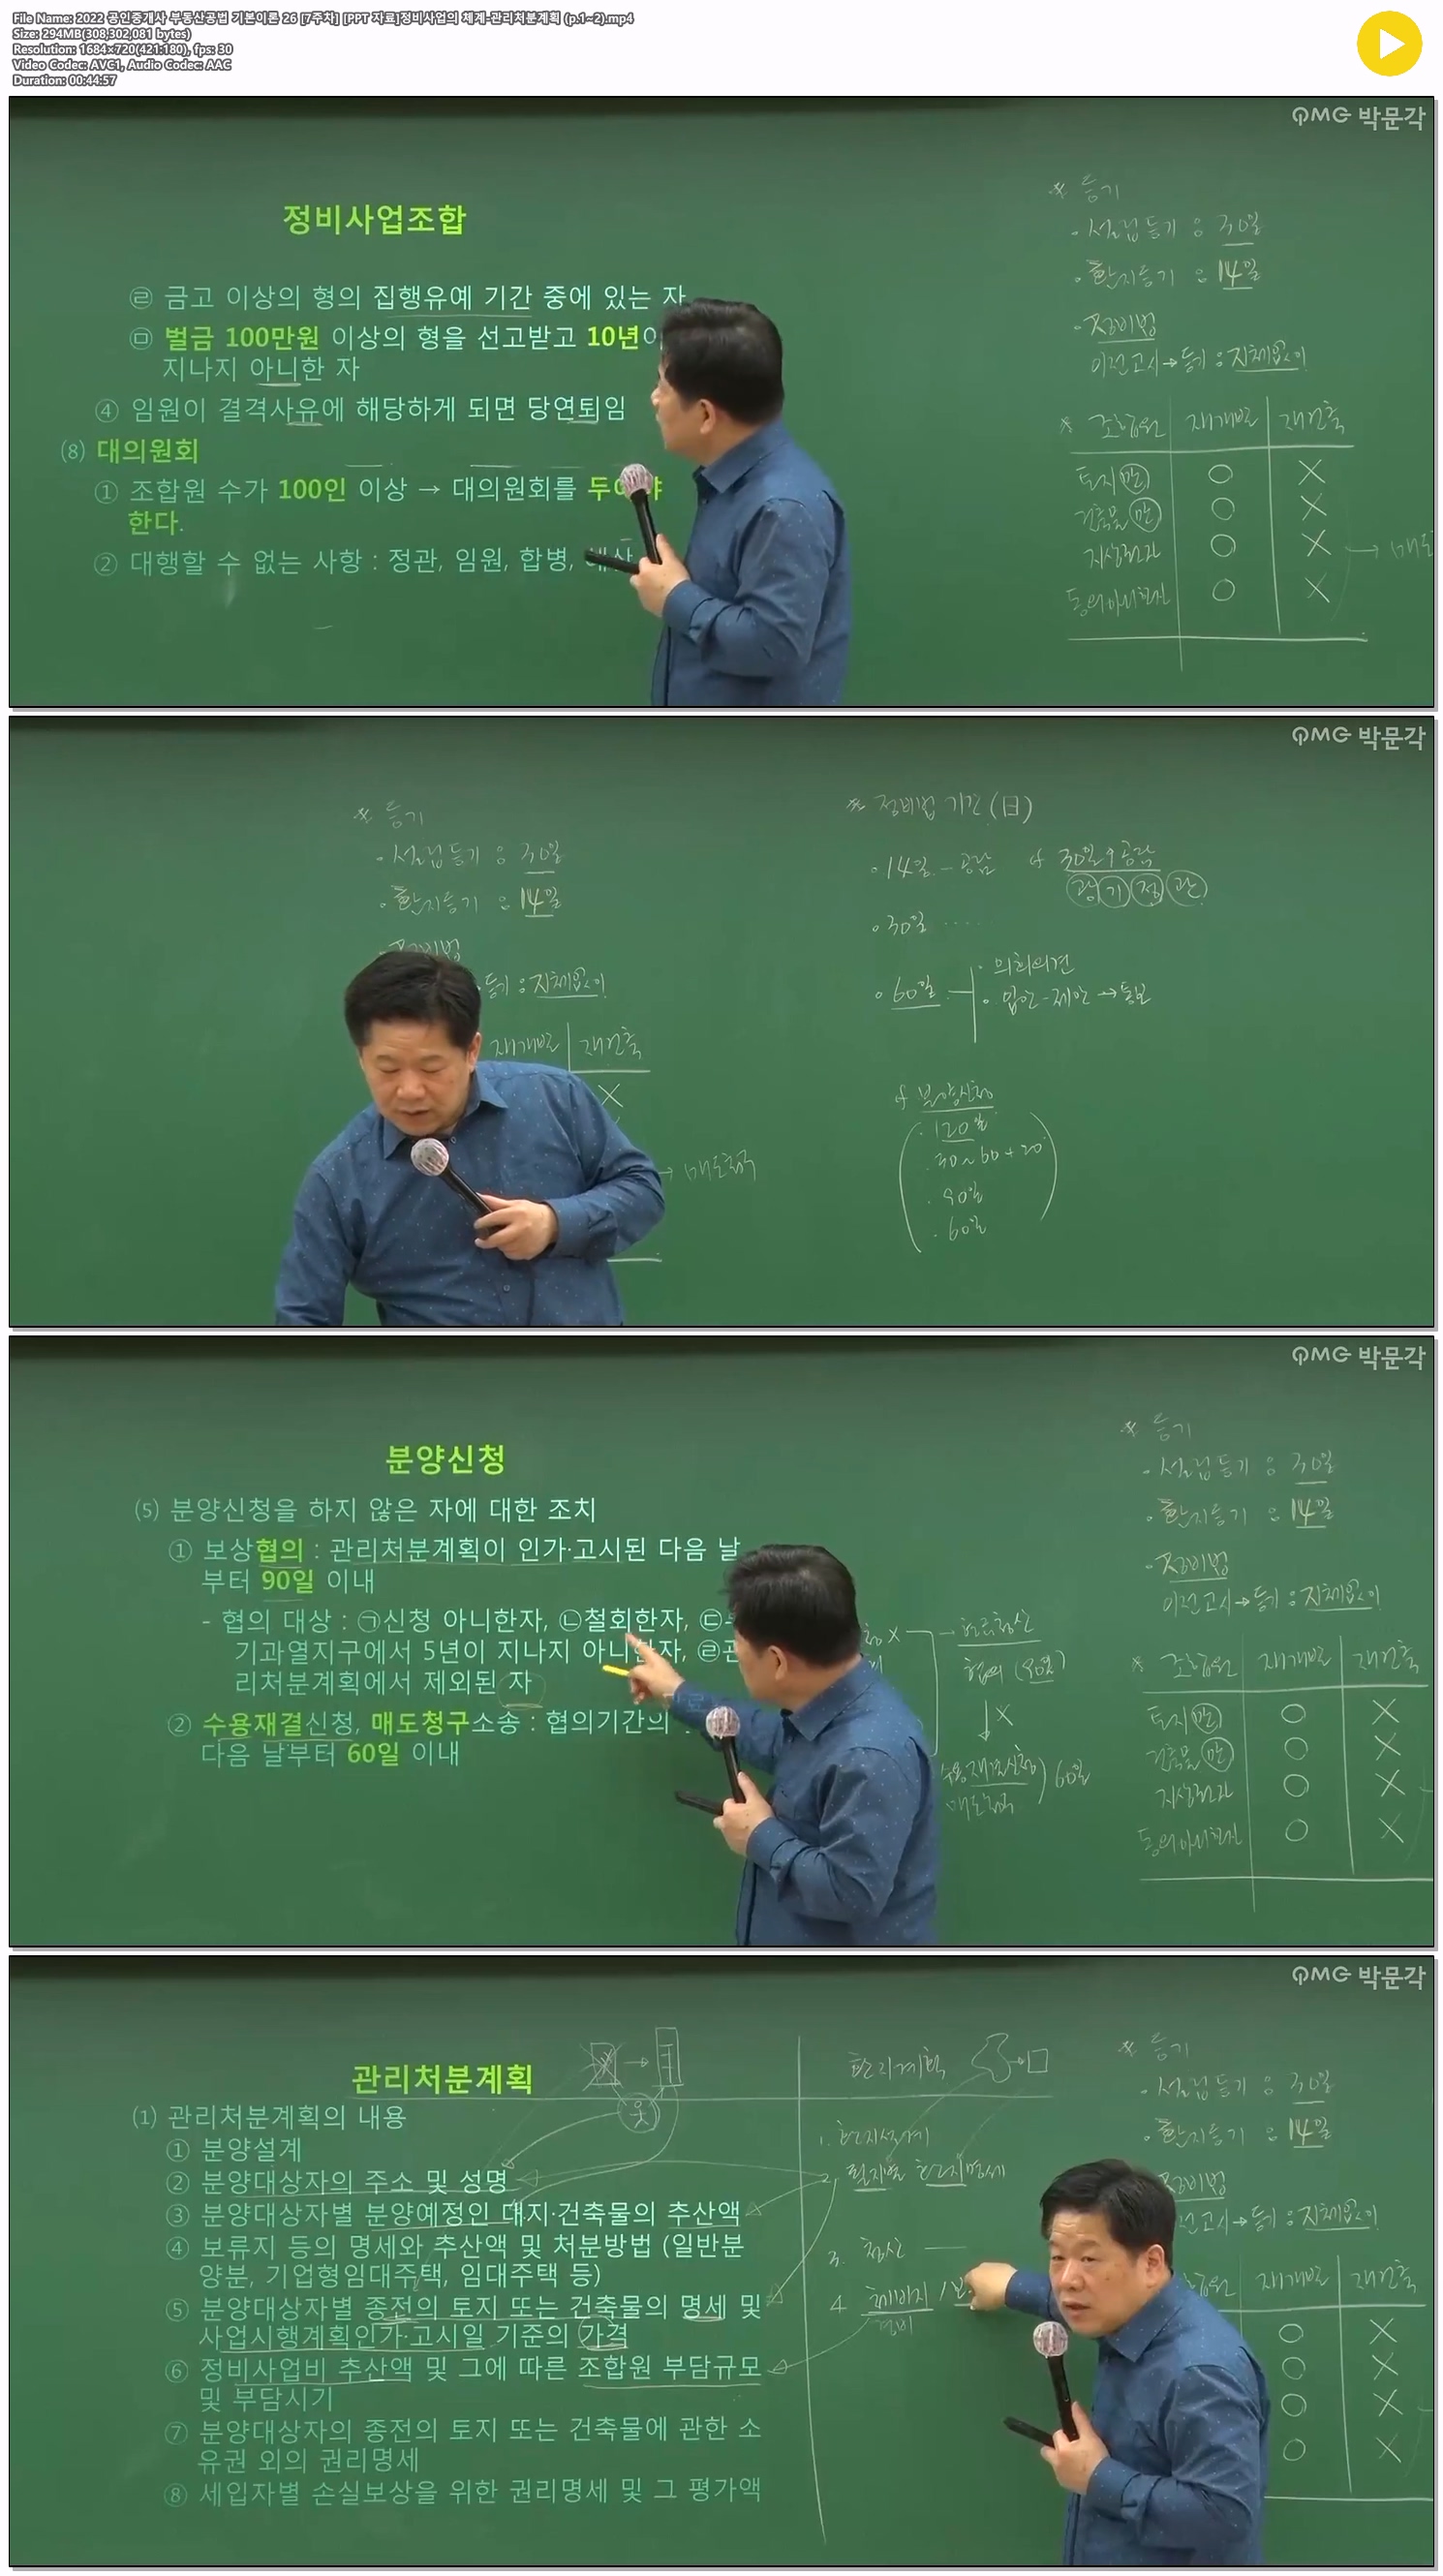 File Name: 2022 공인중개사 부동산공법 기본이론 26 [7주차] [PPT 자료]정비사업의 체계-관리처분계획 (p.1~2).mp4
Size: 294MB(308,302,081 bytes)
Resolution: 1684×720(421:180), fps: 30
Video Codec: AVC1, Audio Codec: AAC
Duration: 00:44:57
PMG 박문각
정비사업조합
㉣ 금고 이상의 형의 집행유예 기간 중에 있는 자
㉤ 벌금 100만원 이상의 형을 선고받고 10년이
지나지 아니한 자
④ 임원이 결격사유에 해당하게 되면 당연퇴임
(8) 대의원회
① 조합원 수가 100인 이상 → 대의원회를 두어야
한다.
② 대행할 수 없는 사항 : 정관, 임원, 합병, 예산
* 등기
· 설립등기 : 30일
· 환지등기 : 14일
· 정비법
이전고시→등기 : 지체없이
* 조합원 재개발 재건축
토지만 ○ ×
건축물만 ○ ×
지상권자 ○ ×
동의아니한자 ○ ×
PMG 박문각
* 등기
· 설립등기 : 30일
· 환지등기 : 14일
정비법
등기 : 지체없이
재개발 재건축
×
→ 매도청구
* 정비법 기간(日)
· 14일 - 공람
30일↑공람
· 30일 ····
· 60일
· 의회의견
· 입안-제안→통보
분양신청
· 120일
· 30~60+20
· 90일
· 60일
PMG 박문각
분양신청
(5) 분양신청을 하지 않은 자에 대한 조치
① 보상협의 : 관리처분계획이 인가·고시된 다음 날
부터 90일 이내
- 협의 대상 : ㉠신청 아니한자, ㉡철회한자, ㉢
기과열지구에서 5년이 지나지 아니한자, ㉣관
리처분계획에서 제외된 자
② 수용재결신청, 매도청구소송 : 협의기간의
다음 날부터 60일 이내
× → 현금청산
협의 (90일)
↓×
수용재결신청
매도청구
) 60일
* 등기
· 설립등기 : 30일
· 환지등기 : 14일
· 정비법
이전고시→등기 : 지체없이
* 조합원 재개발 재건축
토지만 ○ ×
건축물만 ○ ×
지상권자 ○ ×
동의아니한자 ○ ×
PMG 박문각
관리처분계획
(1) 관리처분계획의 내용
① 분양설계
② 분양대상자의 주소 및 성명
③ 분양대상자별 분양예정인 대지·건축물의 추산액
④ 보류지 등의 명세와 추산액 및 처분방법 (일반분
양분, 기업형임대주택, 임대주택 등)
⑤ 분양대상자별 종전의 토지 또는 건축물의 명세 및
사업시행계획인가·고시일 기준의 가격
⑥ 정비사업비 추산액 및 그에 따른 조합원 부담규모
및 부담시기
⑦ 분양대상자의 종전의 토지 또는 건축물에 관한 소
유권 외의 권리명세
⑧ 세입자별 손실보상을 위한 권리명세 및 그 평가액
환지계획
1. 환지설계
2. 필지별 환지명세
3. 청산
4. 체비지 / 보
경비
* 등기
· 설립등기 : 30일
· 환지등기 : 14일
정비법
전고시→등기 : 지체없이
합원 재개발 재건축
○ ×
○ ×
○ ×
○ ×